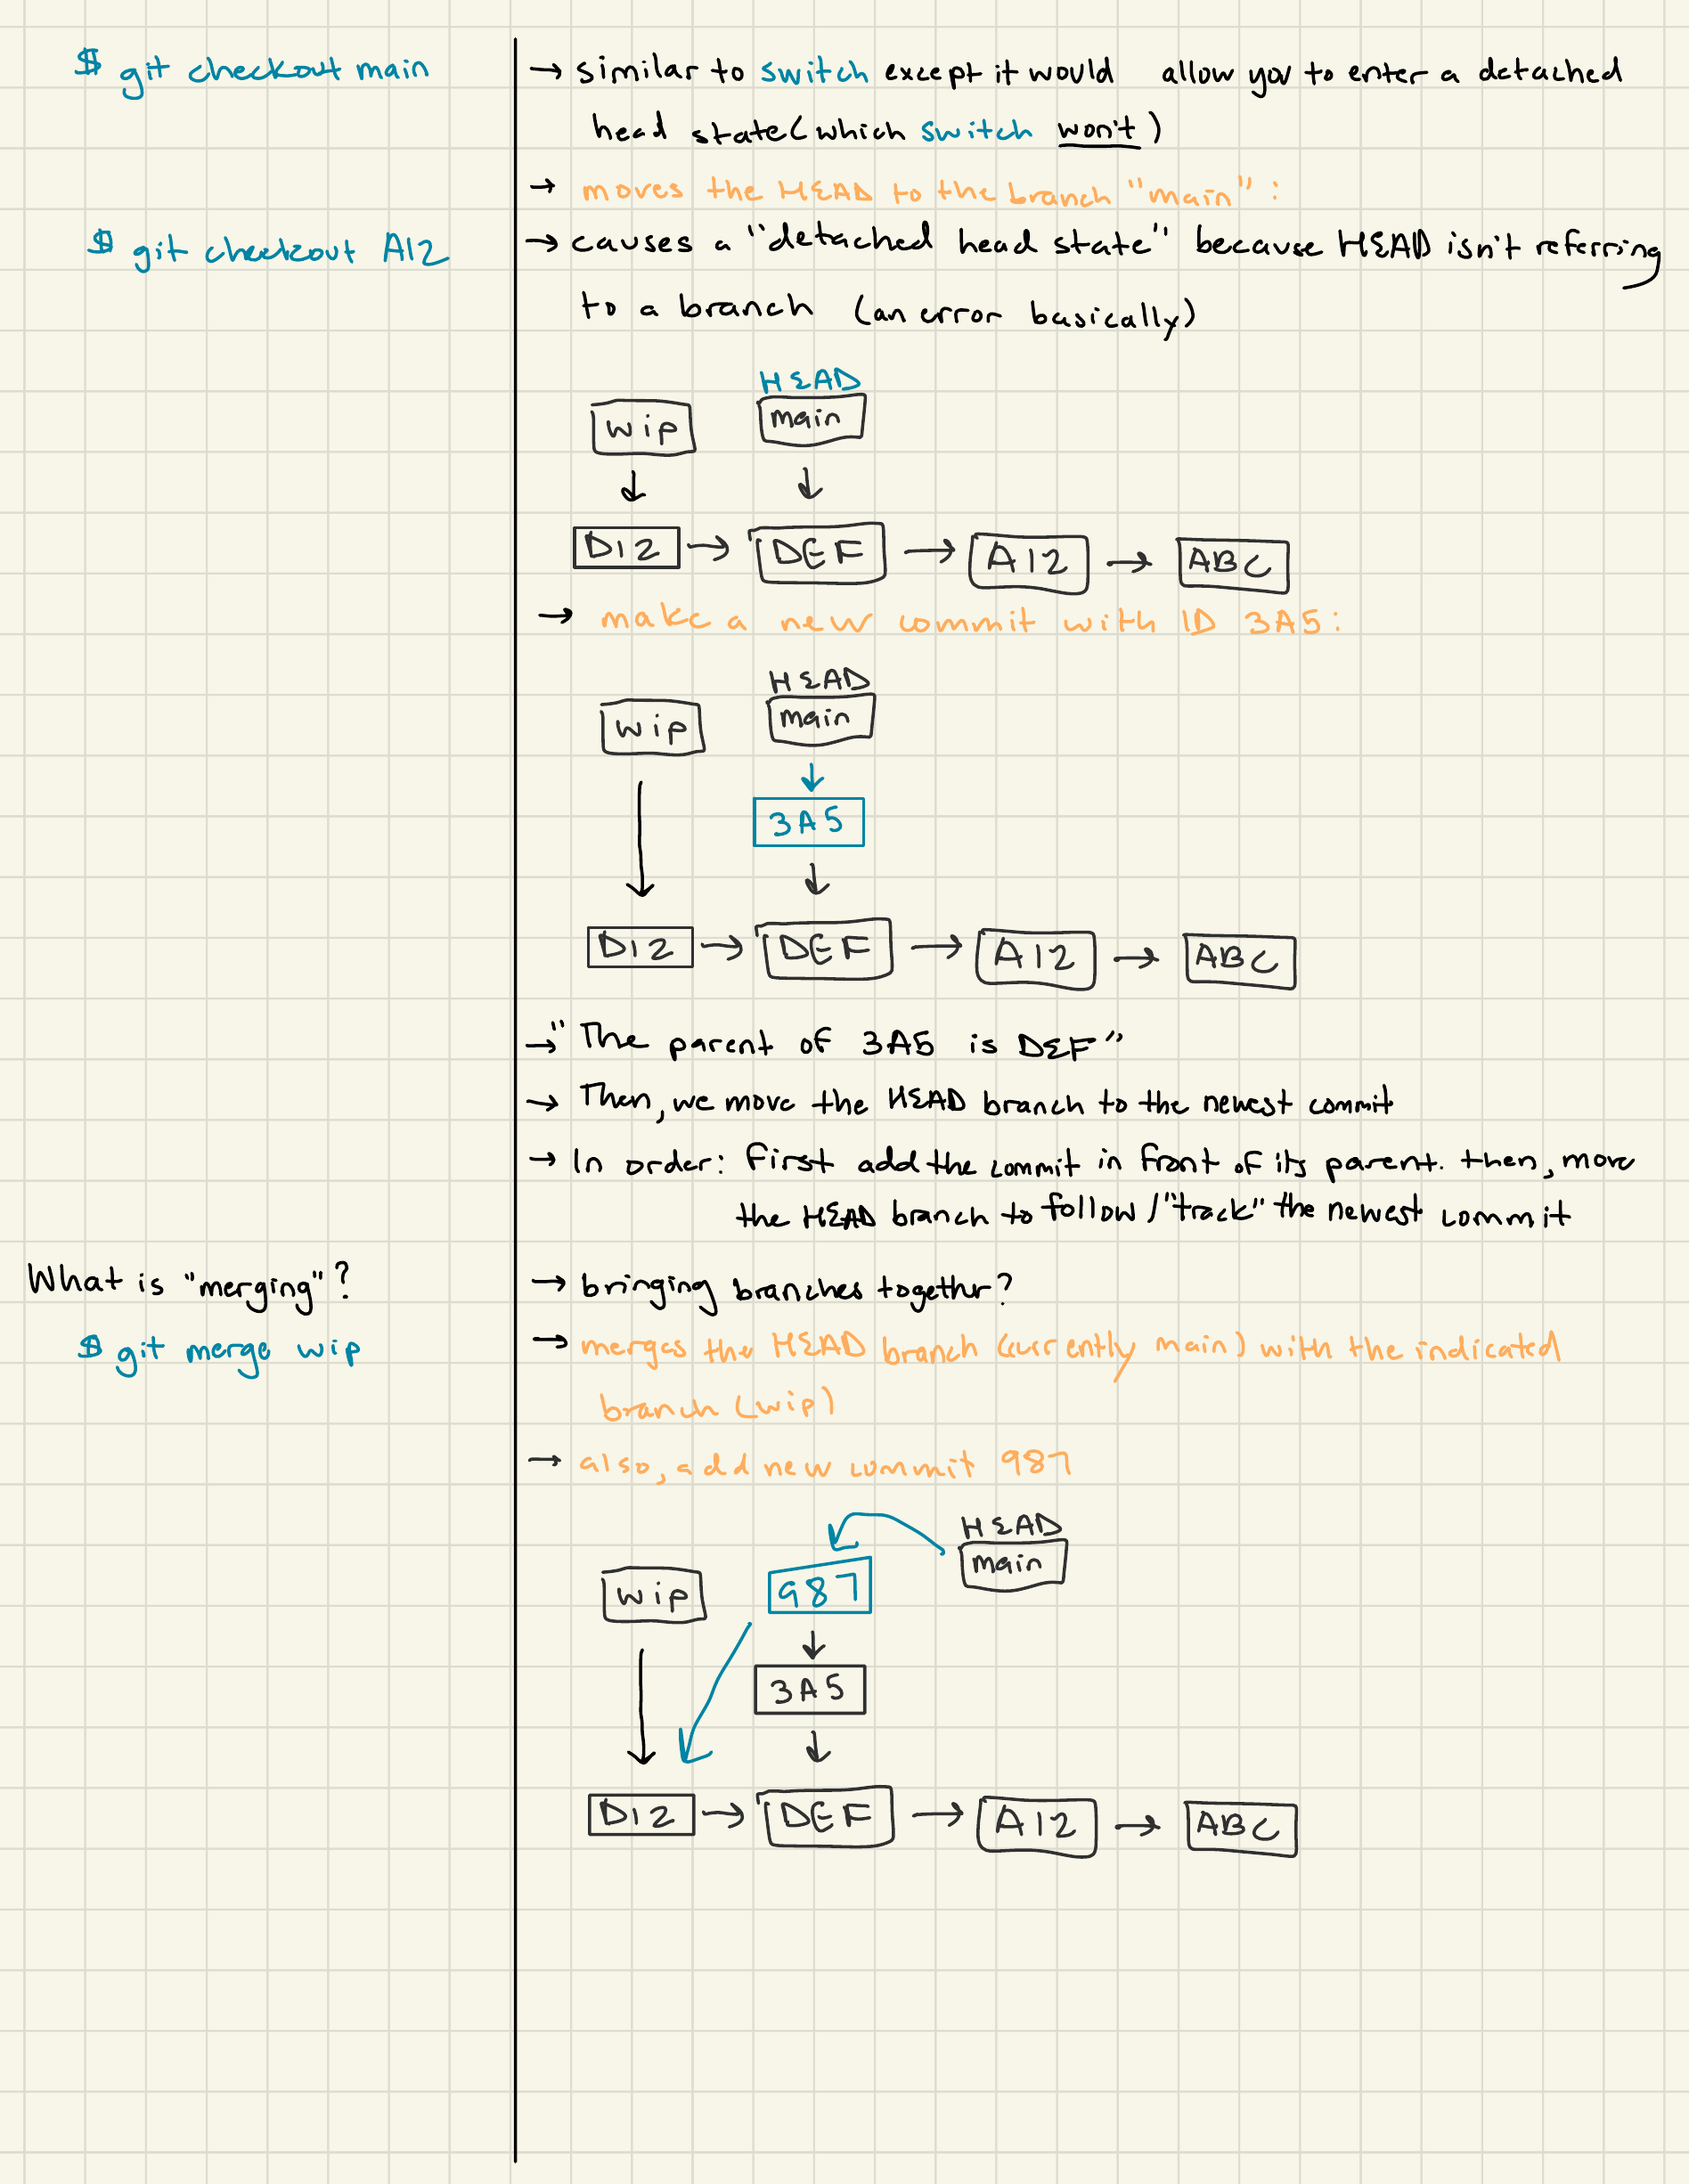 $ git checkout main
→ similar to switch except it would allow you to enter a detached
head state (which switch won't)
→ moves the HEAD to the branch "main":
$ git checkout A12
→ causes a "detached head state" because HEAD isn't referring
to a branch (an error basically)
HEAD
wip main
D12 → DEF → A12 → ABC
→ make a new commit with ID 3A5:
HEAD
wip main
3A5
D12 → DEF → A12 → ABC
→ "The parent of 3A5 is DEF"
→ Then, we move the HEAD branch to the newest commit
→ In order: First add the commit in front of its parent. then, move
the HEAD branch to follow / "track" the newest commit
What is "merging"?
→ bringing branches together?
$ git merge wip
→ merges the HEAD branch (currently main) with the indicated
branch (wip)
→ also, add new commit 987
HEAD
main
wip 987
3A5
D12 → DEF → A12 → ABC